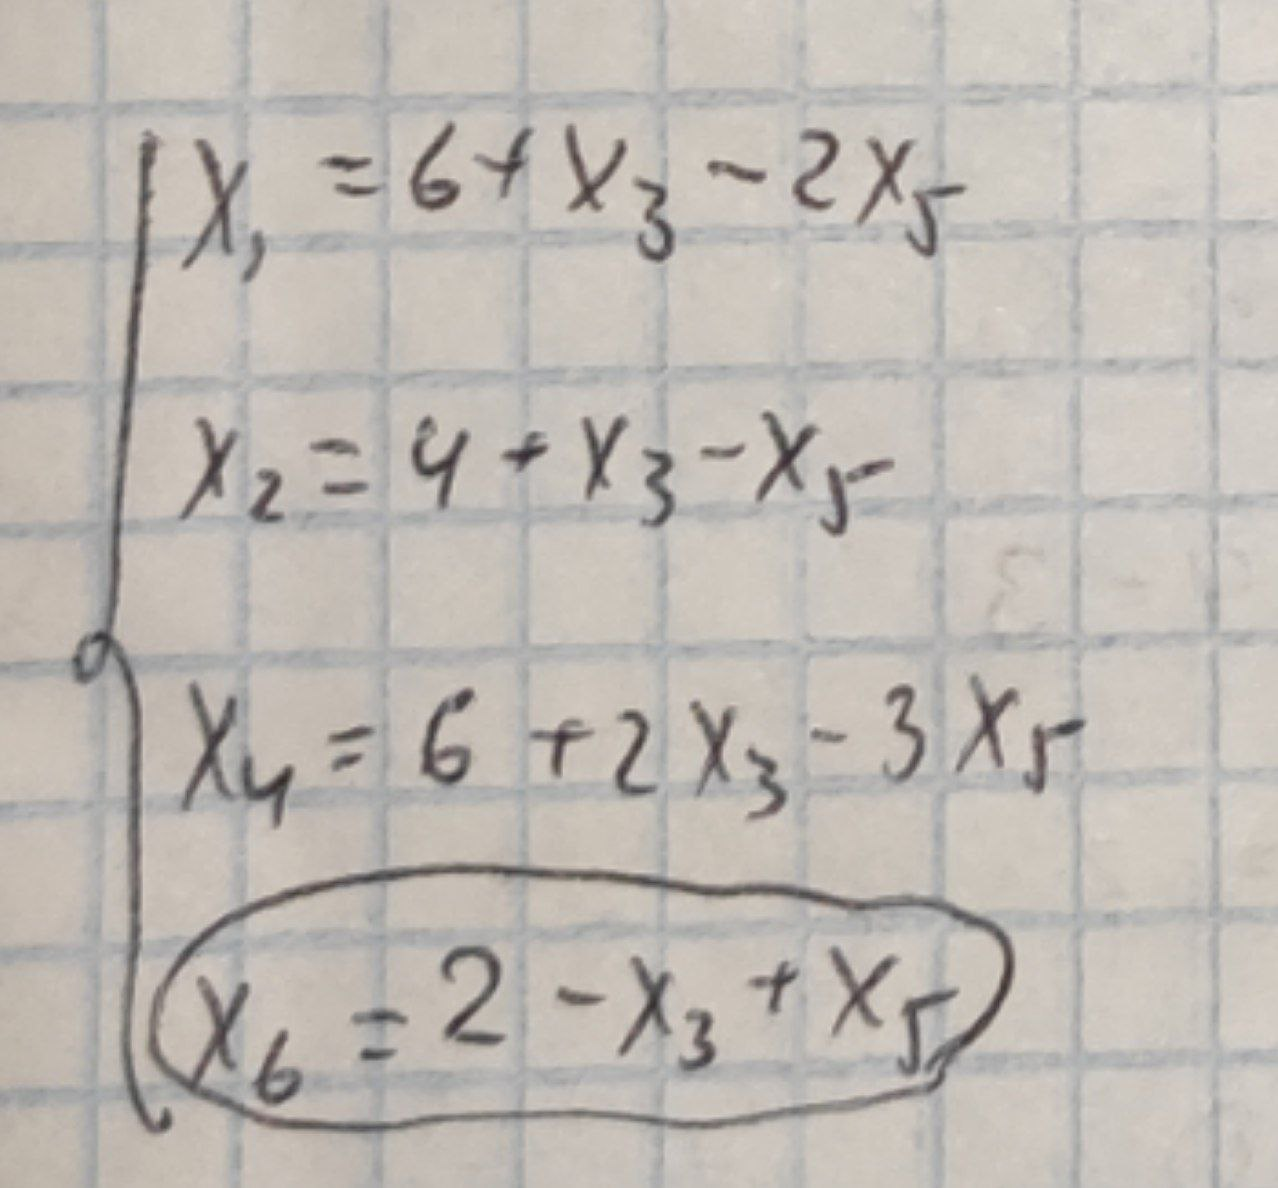 x₁ = 6 + x₃ - 2x₅
x₂ = 4 + x₃ - x₅
x₄ = 6 + 2x₃ - 3x₅
x₆ = 2 - x₃ + x₅